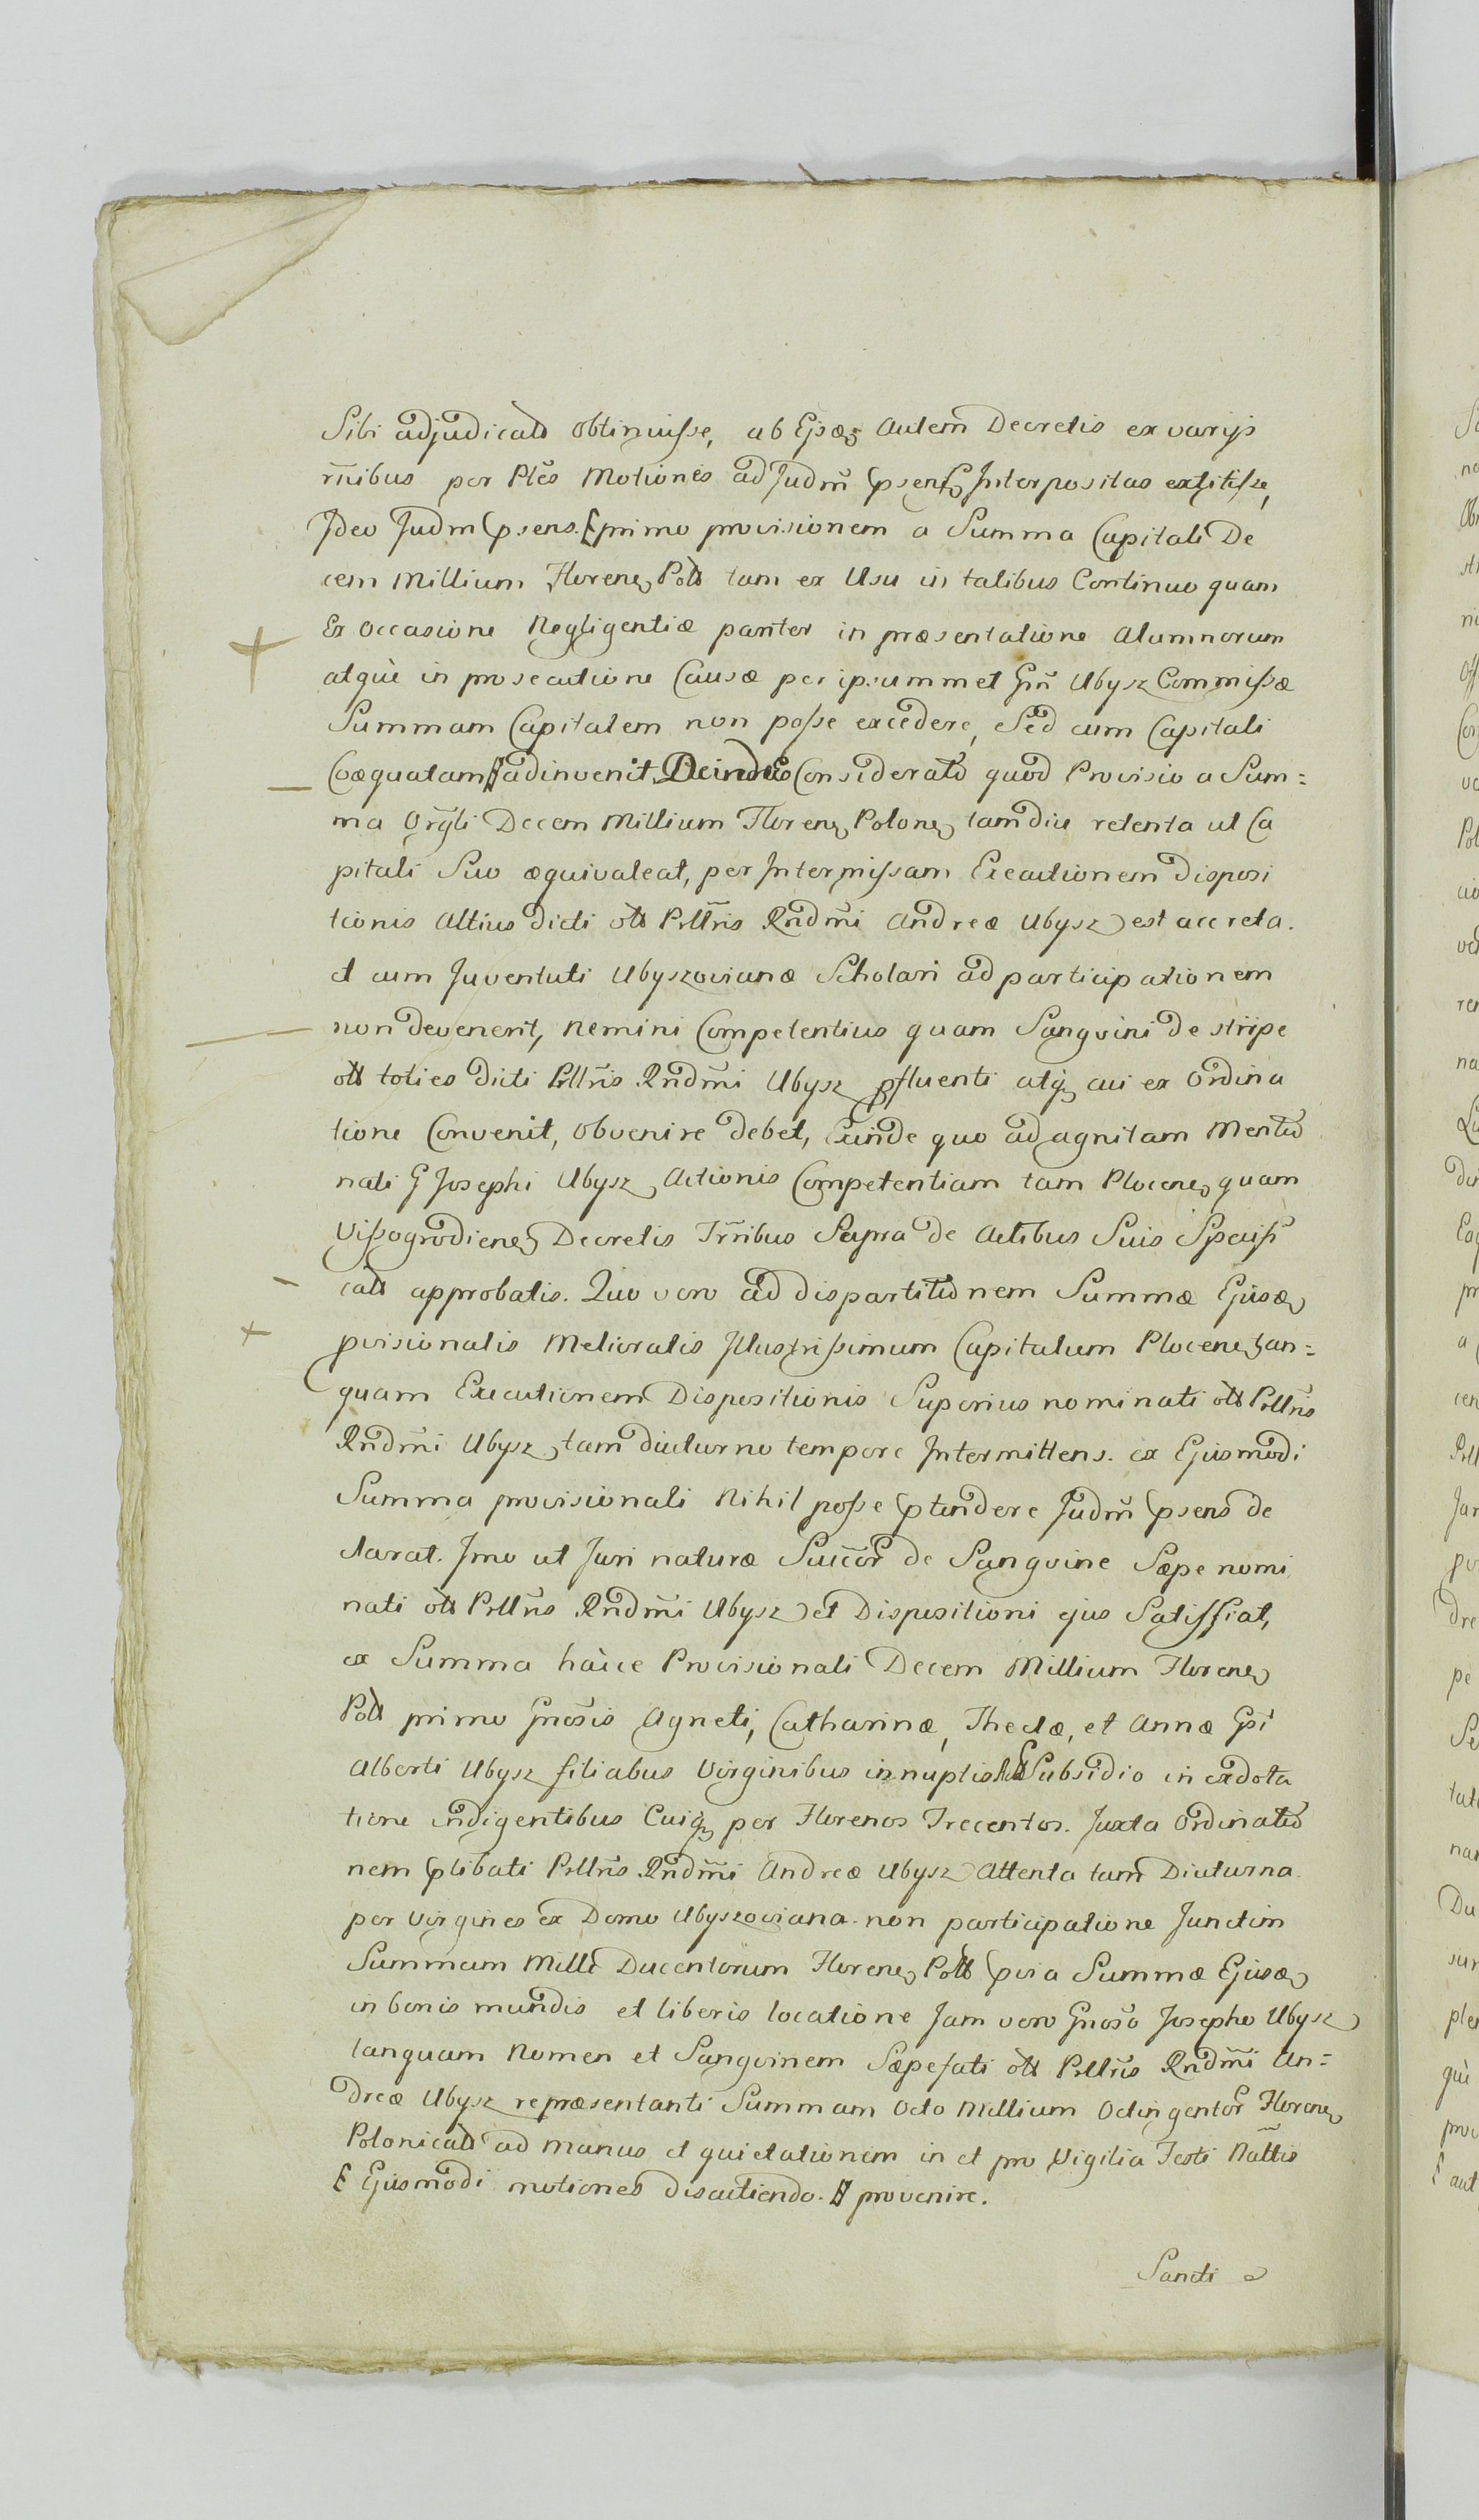 Sibi adjudicato obtinuisse, ab Ejsdem autem Decretis ex varijs
rñibus per Ptes Motiones ad Judm̃ psens Interpositas extitisse,
Ideo Judm psens. primo provisionem a Summa Capitali De
cem Millium Floren Poll tam ex Usu in talibus Continuo quam
Ex occasione Negligentiæ pariter in præsentatione Alumnorum
atquè in prosecutione Causæ per ipsummet Gñ Ubysz Commissæ
Summam Capitalem non posse excedere, Sed cum Capitali
Coæquatam adinvenit. Deinde Considerato quod Provisio a Sum=
ma Orgli Decem Millium Floren Polon tamdiu retenta ut Ca
pitali Suo æquivaleat, per Intermissam Executionem disposi
tionis Altius dicti olt Pllris Rndm̃i Andreæ Ubysz est accreta.
et cum Juventuti Ubyszovianæ Scholari ad participationem
non devenerit, Nemini Competentius quam Sangvini de stirpe
olt toties dicti Pllris Rndm̃i Ubysz pfluenti atq cui ex Ordina
tione Convenit, obvenire debet, Exinde quo ad agnitam Mentio
nati G Josephi Ubysz Actionis Competentiam tam Plocen quam
Vissogrodien Decretis Trñibus Supra de Actibus Suis Specifi
catt approbatis. Quo vero ad dispartitionem Summæ Ejusd
pvisionalis Melioratis Illustrissimum Capitulum Plocen tan=
quam Executionem Dispositionis Superius nominati olt Pllris
Rndm̃i Ubysz tam diuturno tempore Intermittens. ex Ejusmodi
Summa provisionali Nihil posse ptendere Judm̃ psens de
clarat. Imo ut Juri naturæ Succor de Sangvine Sæpe nomi
nati olt Pllris Rndm̃i Ubysz et Dispositioni ejus Satisfiat,
ex Summa hàcce Provisionali Decem Millium Floren
Poll primo Gnosis Agneti, Catharinæ, Theclæ, et Annæ Gsi
Alberti Ubysz filiabus Virginibus innuptis Subsidio in exdota
tione indigentibus Cuiq per Florenos Trecentos. Juxta Ordinatio
nem plibati Pllris Rndm̃i Andreæ Ubysz Attenta tam Diuturna
per Virgines ex Domo Ubyszoviana non participatione Junctim
Summam Mille Ducentorum Floren Poll pvia Summæ Ejusd
in bonis mundis et liberis locatione Jam vero Gnoso Josepho Ubysz
tanquam Nomen et Sangvinem Sæpefati olt Pllris Rndm̃i An=
dreæ Ubysz repræsentanti Summam Octo Millium Octingentor Floren
Polonicall ad Manus et quietationem in et pro Vigilia Festi Nattis
Ejusmodi motiones discutiendo. provenire.
Sancti